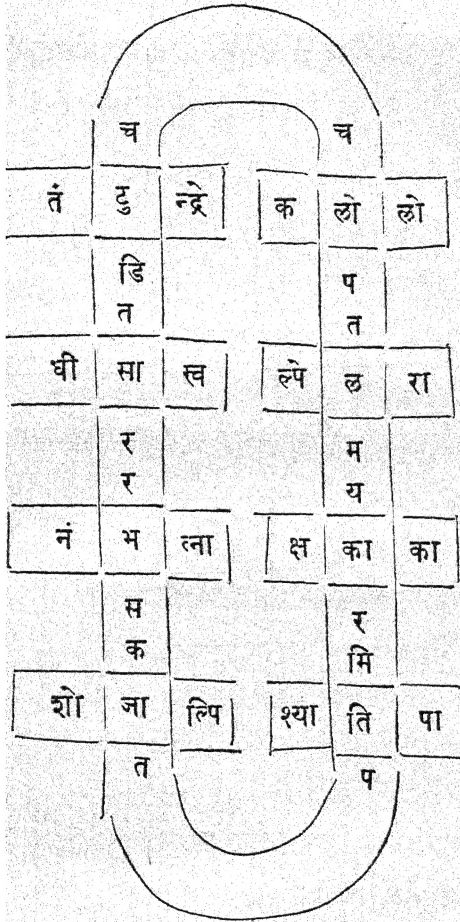 च च
तं टु न्द्रे क लो लो
डि प
त त
धी सा स्व ल्पे ल रा
र म
र य
नं भ त्ना क्ष का का
स र
क मि
शो जा ल्पि श्या ति पा
त प